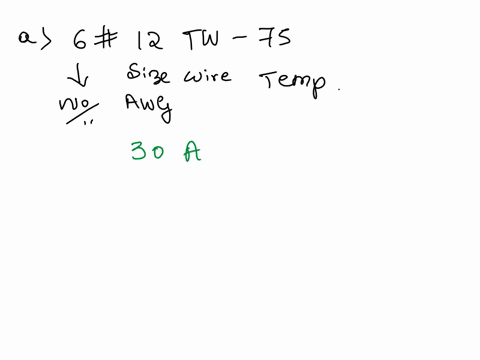 a> 6 # 12 TW - 75
↓ Size wire Temp.
No. AWG
30 A